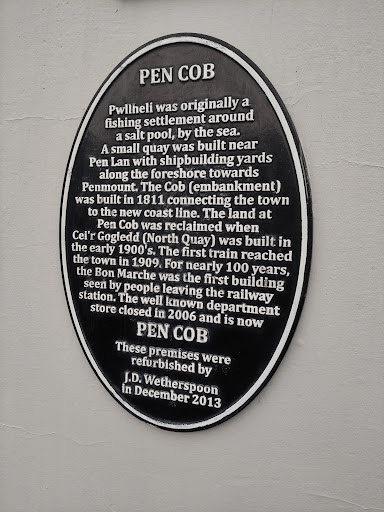 PEN COB
Pwllheli was originally a
fishing settlement around
a salt pool, by the sea.
A small quay was built near
Pen Lan with shipbuilding yards
along the foreshore towards
Penmount. The Cob (embankment)
was built in 1811 connecting the town
to the new coast line. The land at
Pen Cob was reclaimed when
Cei'r Gogledd (North Quay) was built in
the early 1900's. The first train reached
the town in 1909. For nearly 100 years,
the Bon Marche was the first building
seen by people leaving the railway
station. The well known department
store closed in 2006 and is now
PEN COB
These premises were
refurbished by
J.D. Wetherspoon
in December 2013